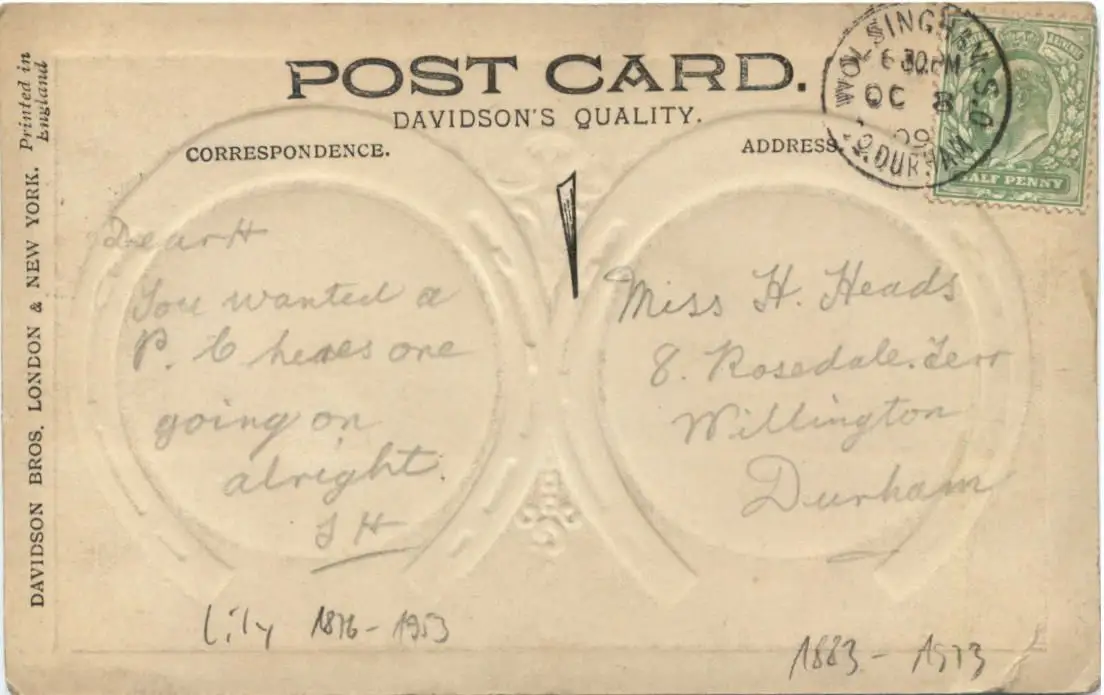 POST CARD.
DAVIDSON'S QUALITY.
CORRESPONDENCE.
ADDRESS
WOLSINGHAM S.O.
6 30 PM
OC 8
09
DURHAM
HALF PENNY
Printed in
England
DAVIDSON BROS. LONDON & NEW YORK.
Dear H
You wanted a
P. C heres one
going on
alright
H
Miss H. Heads
8. Rosedale. Terr
Willington
Durham
Lily 1876 - 1953
1883 - 1973